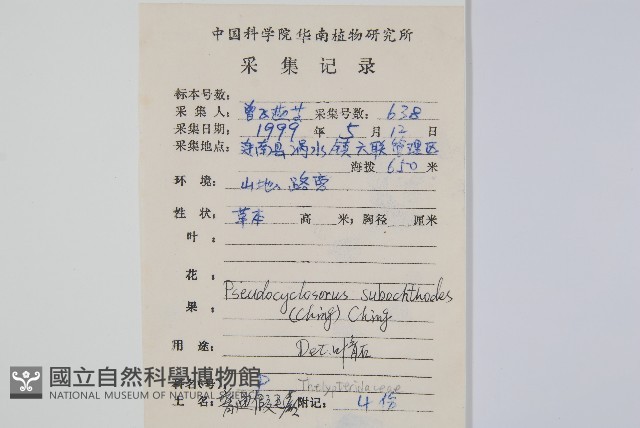 中国科学院华南植物研究所
采集记录
标本号数：
采集人： 采集号数： 638
采集日期： 1999 年 5 月 12 日
采集地点： 连南县涡水镇六联管理区
海拨 650 米
环境： 山地，路旁
性状： 草本 高 米；胸径 厘米
叶：
花：
Pseudocyclosorus subochthodes
果：
(Ching) Ching
用途： Det.
國立自然科學博物館
NATIONAL MUSEUM OF NATURAL
Thelypteridaceae
土名： 附记： 4 份